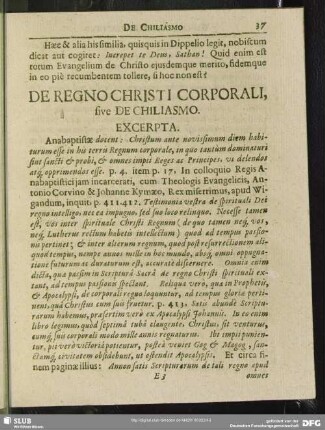 DE CHILIASMO. 37
Hæc & alia his similia, quisquis in Dippelio legit, nobiscum
dicat aut cogitet: Increpet te Deus, Sathan! Quid enim est
totum Evangelium de Christo ejusdemque merito, fidemque
in eo piè recumbentem tollere, si hoc non est?
DE REGNO CHRISTI CORPORALI,
sive DE CHILIASMO.
EXCERPTA.
Anabaptistæ docent: Christum ante novissimum diem habi-
turum esse in his terris Regnum corporale, in quo tantùm dominaturi
sint sancti & probi, & omnes impii Reges ac Principes, vi delendos
atq; opprimendos esse. p. 4. item p. 17. In colloquio Regis A-
nabaptistici jam incarcerati, cum Theologis Evangelicis, An-
tonio Corvino & Johanne Kymæo, Rex miserrimus, apud Wi-
gandum, inquit p. 411.412. Testimonia vestra de spirituali Dei
regno intelligo, nec ea impugno, sed suo loco relinquo. Necesse tamen
est, vos inter spirituale Christi Regnum (de quo tamen neq; vos,
neq; Lutherus rectum habetis intellectum) quod ad tempus passio-
nis pertinet; & inter alterum regnum, quod post resurrectionem ali-
quod tempus, nempe annos mille in hoc mundo, absq; omni oppugna-
tione futurum ac duraturum est, accuratè discernere. Omnia enim
dicta, quæ passim in Scripturâ Sacrâ de regno Christi spirituali ex-
tant, ad tempus passionum spectant. Reliqua verò, quæ in Prophetis,
& Apocalypsi, de corporali regno loquuntur, ad tempus gloriæ perti-
nent, quâ Christus cum suis fruetur. p. 413. Satis abunde Scriptu-
rarum habemus, præsertim verò ex Apocalypsi Johannis. In eo enim
libro legimus, quòd septimâ tubâ clangente, Christus, sit venturus,
cumq; suis corporali modo mille annis regnaturum. Ibi impii punien-
tur, pii verò victoriâ potientur, posteà veniet Gog & Magog, san-
ctamq; civitatem obsidebunt, ut ostendit Apocalypsis. Et circa fi-
nem paginæ illius: Annon satis Scripturarum de tali regno apud
E 3 omnes
SLUB
Wir führen Wissen.
Gefördert von der
Deutschen Forschungsgemeinschaft